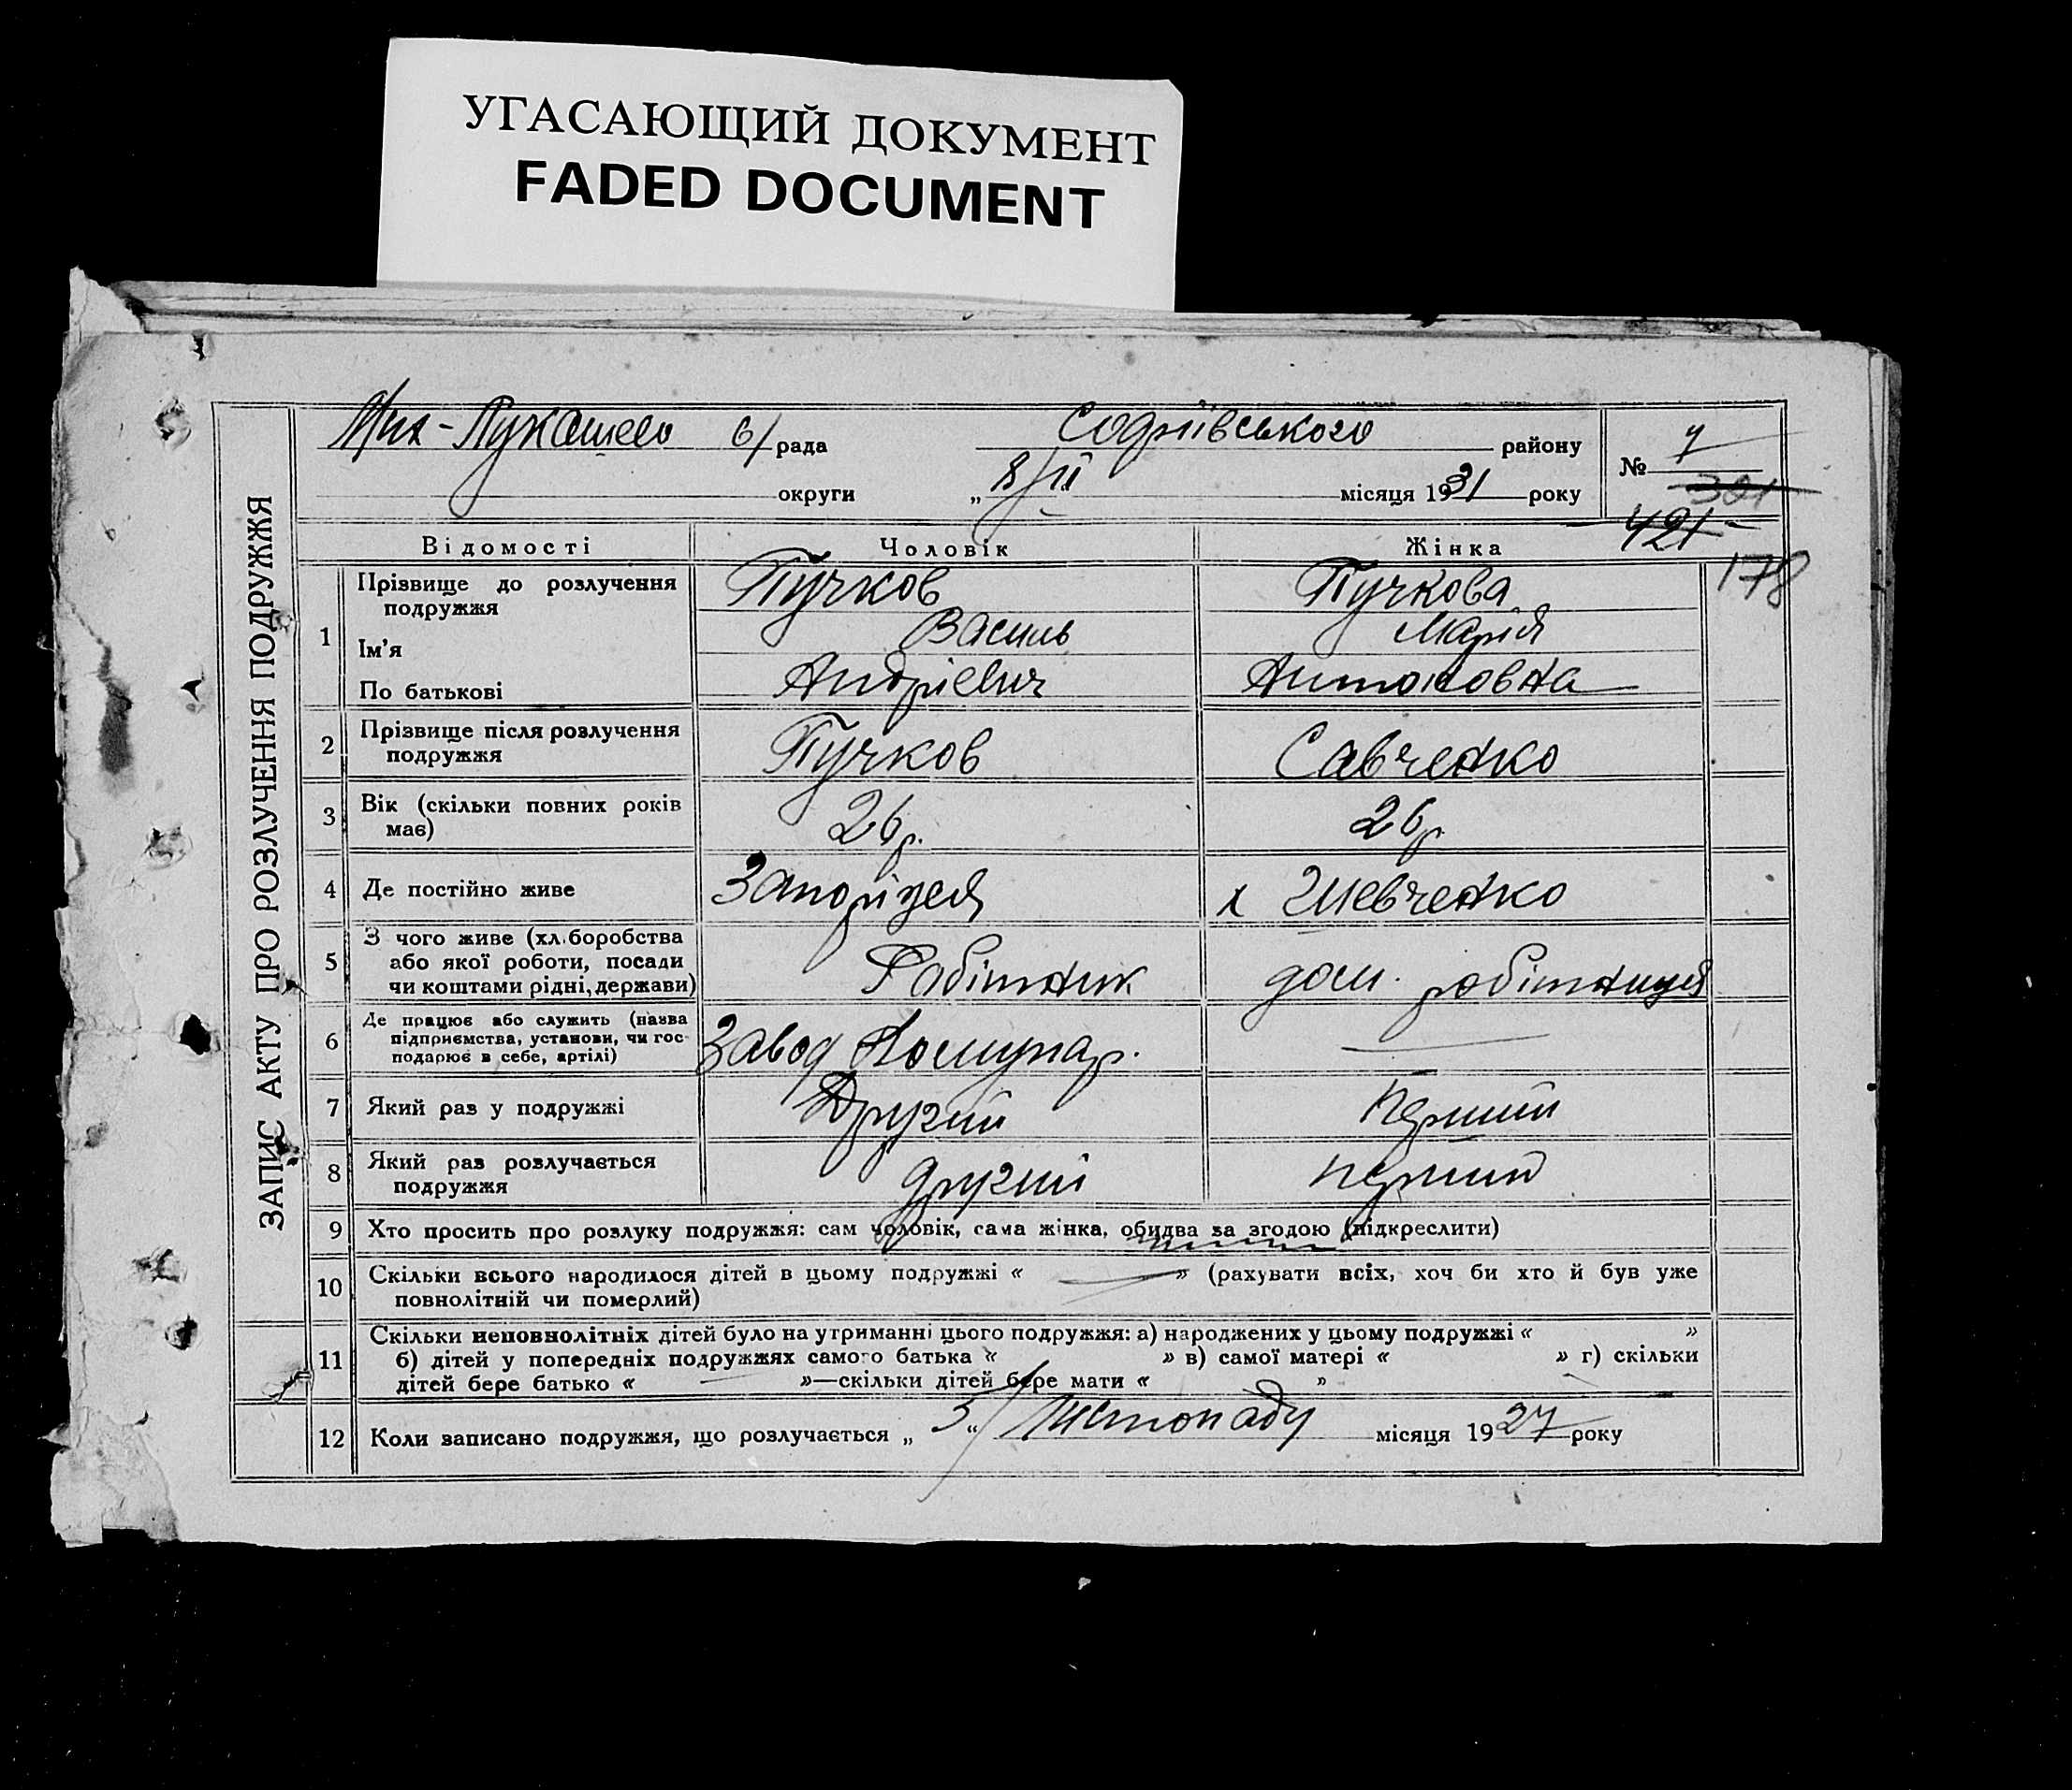 УГАСАЮЩИЙ ДОКУМЕНТ
FADED DOCUMENT
ЗАПИС АКТУ ПРО РОЗЛУЧЕННЯ ПОДРУЖЖЯ
Мих-Лукашево с/рада Софіївського району № 7
округи „ 8/II місяця 1931 року 321
421
178
Відомості Чоловік Жінка
1 Прізвище до розлучення подружжя Пучков Пучкова
Ім'я Василь Марія
По батькові Андрієвич Антоновна
2 Прізвище після розлучення подружжя Пучков Савченко
3 Вік (скільки повних років має) 26 р. 26 р
4 Де постійно живе Запоріжжя х Шевченко
5 З чого живе (хліборобства або якої роботи, посади чи коштами рідні, держави) Робітник дом. робітниця
6 Де працює або служить (назва підприємства, установи, чи господарює в себе, артілі) Завод Комунар. —
7 Який раз у подружжі Другий перший
8 Який раз розлучається подружжя другий перший
9 Хто просить про розлуку подружжя: сам чоловік, сама жінка, обидва за згодою (підкреслити)
10 Скільки всього народилося дітей в цьому подружжі « — » (рахувати всіх, хоч би хто й був уже
повнолітній чи померлий)
11 Скільки неповнолітніх дітей було на утриманні цього подружжя: а) народжених у цьому подружжі « »
б) дітей у попередніх подружжях самого батька « » в) самої матері « » г) скільки
дітей бере батько « — »—скільки дітей бере мати « »
12 Коли записано подружжя, що розлучається „ 5 “ листопаду місяця 1927 року